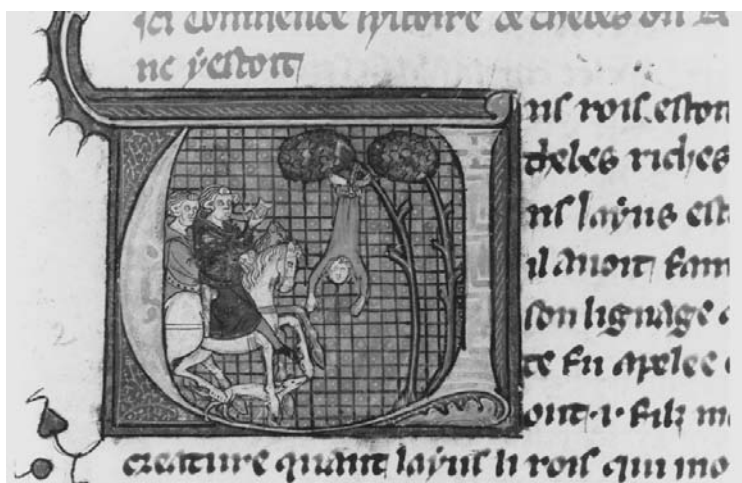 Ici commence de thebes ou
ne yestoit
Uns rois
thebes riches
layus
il auoit fam
son lignage
te fu apelee
.i. filz m
creature quant layus li rois qui mo